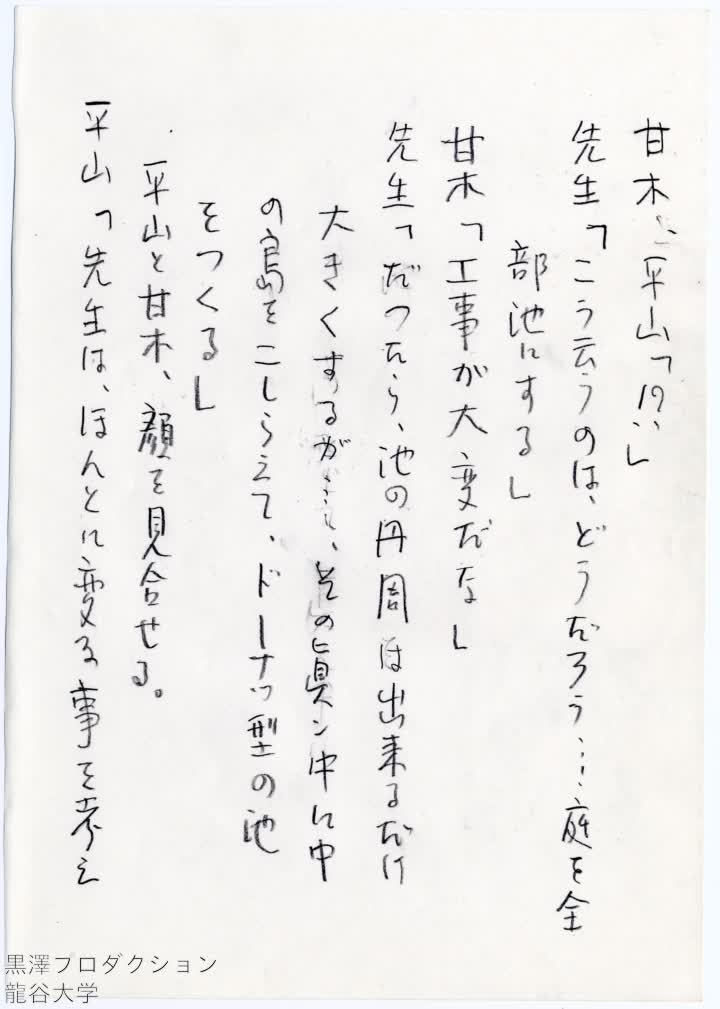 甘木、平山「!?‥」
先生「こう云うのは、どうだろう…庭を全
部池にする」
甘木「工事が大変だな」
先生「だつたら、池の円周は出来るだけ
大きくするが…、その眞ン中に中
の島をこしらえて、ドーナツ型の池
をつくる」
平山と甘木、顔を見合せる。
平山「先生は、ほんとに変な事を考え
黒澤プロダクション
龍谷大学